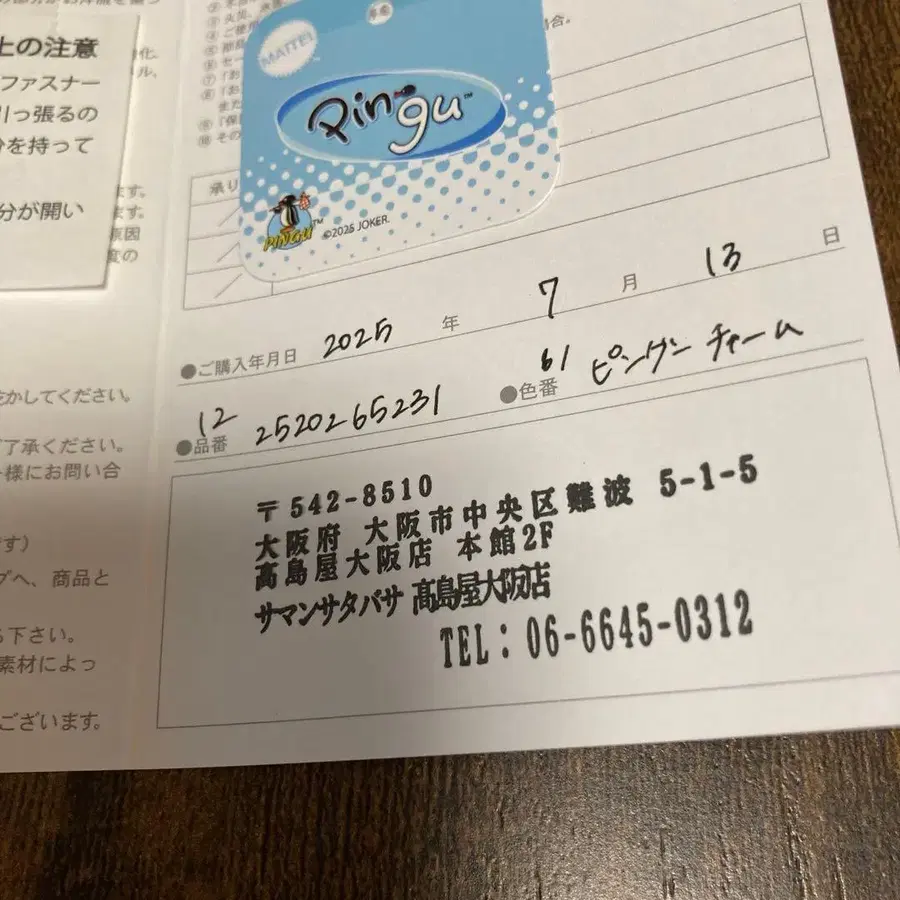 上の注意
ファスナー
引っ張るの
分を持って
分が開い
ます。
ます。
原因
度の
乾かしてください。
了承ください。
様にお問い合
です)
グへ、商品と
下さい。
素材によっ
ございます。
MATTEL
Pingu™
PINGU™
©2025 JOKER.
合。
承り
●ご購入年月日 2025 年 7 月 13 日
12
●品番 2520265231
61
●色番 ピングン チャーム
〒542-8510
大阪府 大阪市中央区難波 5-1-5
髙島屋大阪店 本館2F
サマンサタバサ 髙島屋大阪店
TEL：06-6645-0312